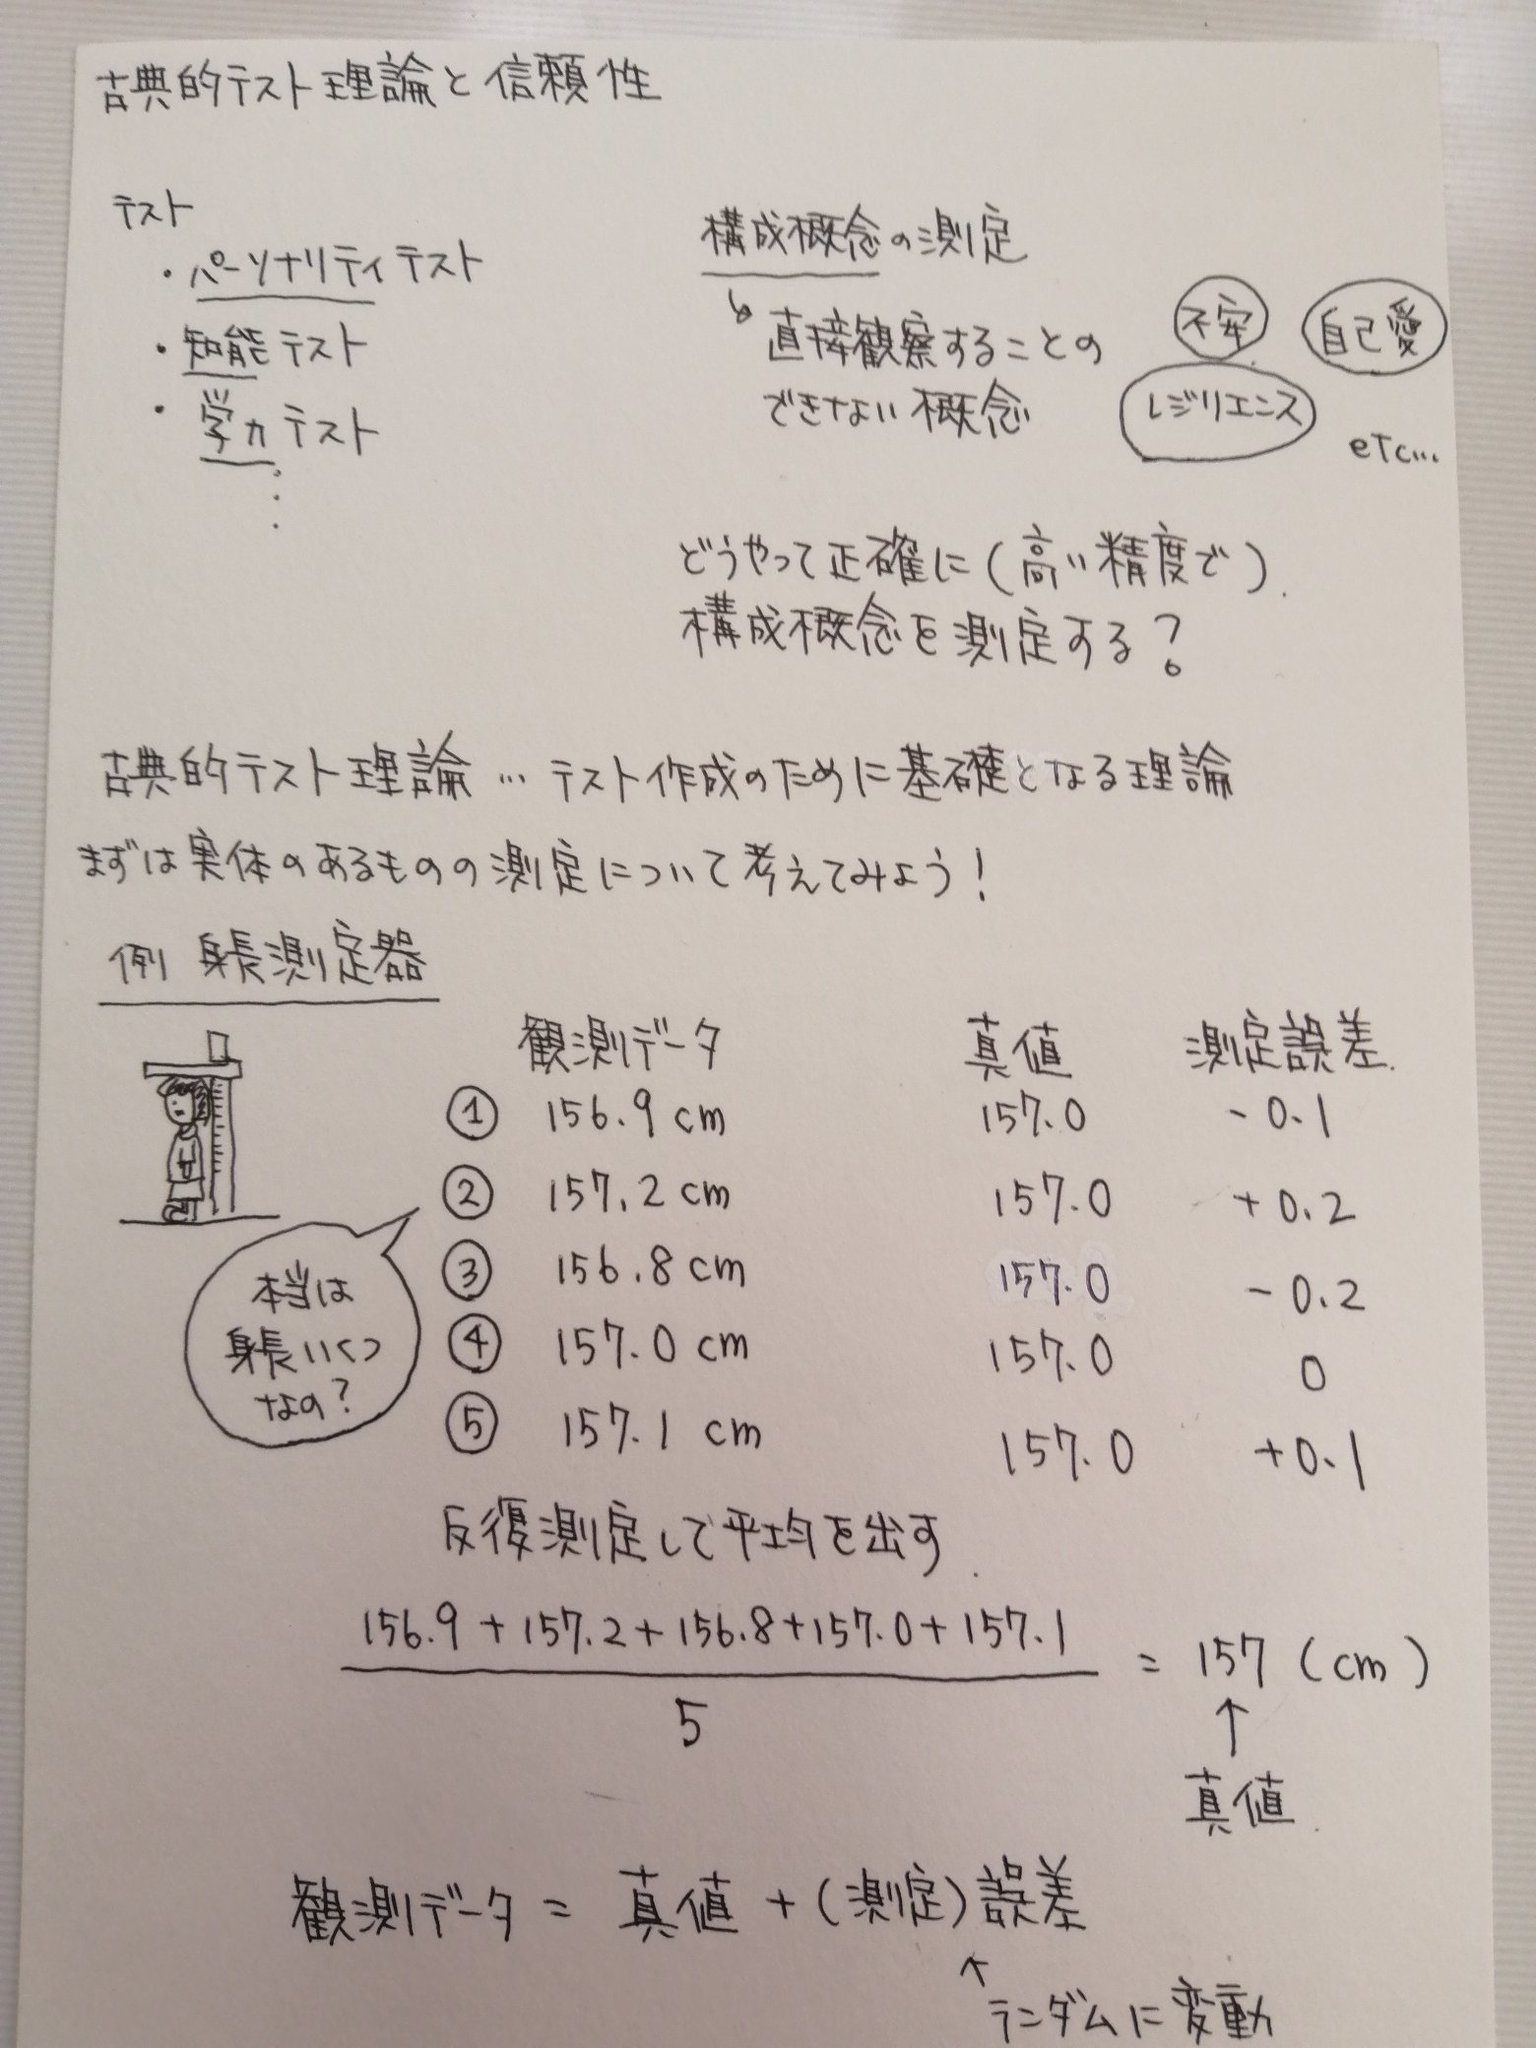 古典的テスト理論と信頼性
テスト
・パーソナリティテスト
・知能テスト
・学力テスト
⋮
構成概念の測定
↳直接観察することの
できない概念
不安
自己愛
レジリエンス
etc...
どうやって正確に(高い精度で)
構成概念を測定する?
古典的テスト理論…テスト作成のために基礎となる理論
まずは実体のあるものの測定について考えてみよう!
例 身長測定器
観測データ 真値 測定誤差
① 156.9cm 157.0 -0.1
② 157.2cm 157.0 +0.2
③ 156.8cm 157.0 -0.2
④ 157.0cm 157.0 0
⑤ 157.1cm 157.0 +0.1
本当は
身長いくつ
なの?
反復測定して平均を出す
156.9+157.2+156.8+157.0+157.1
5
= 157 (cm)
↑
真値
観測データ = 真値 + (測定)誤差
↑
ランダムに変動